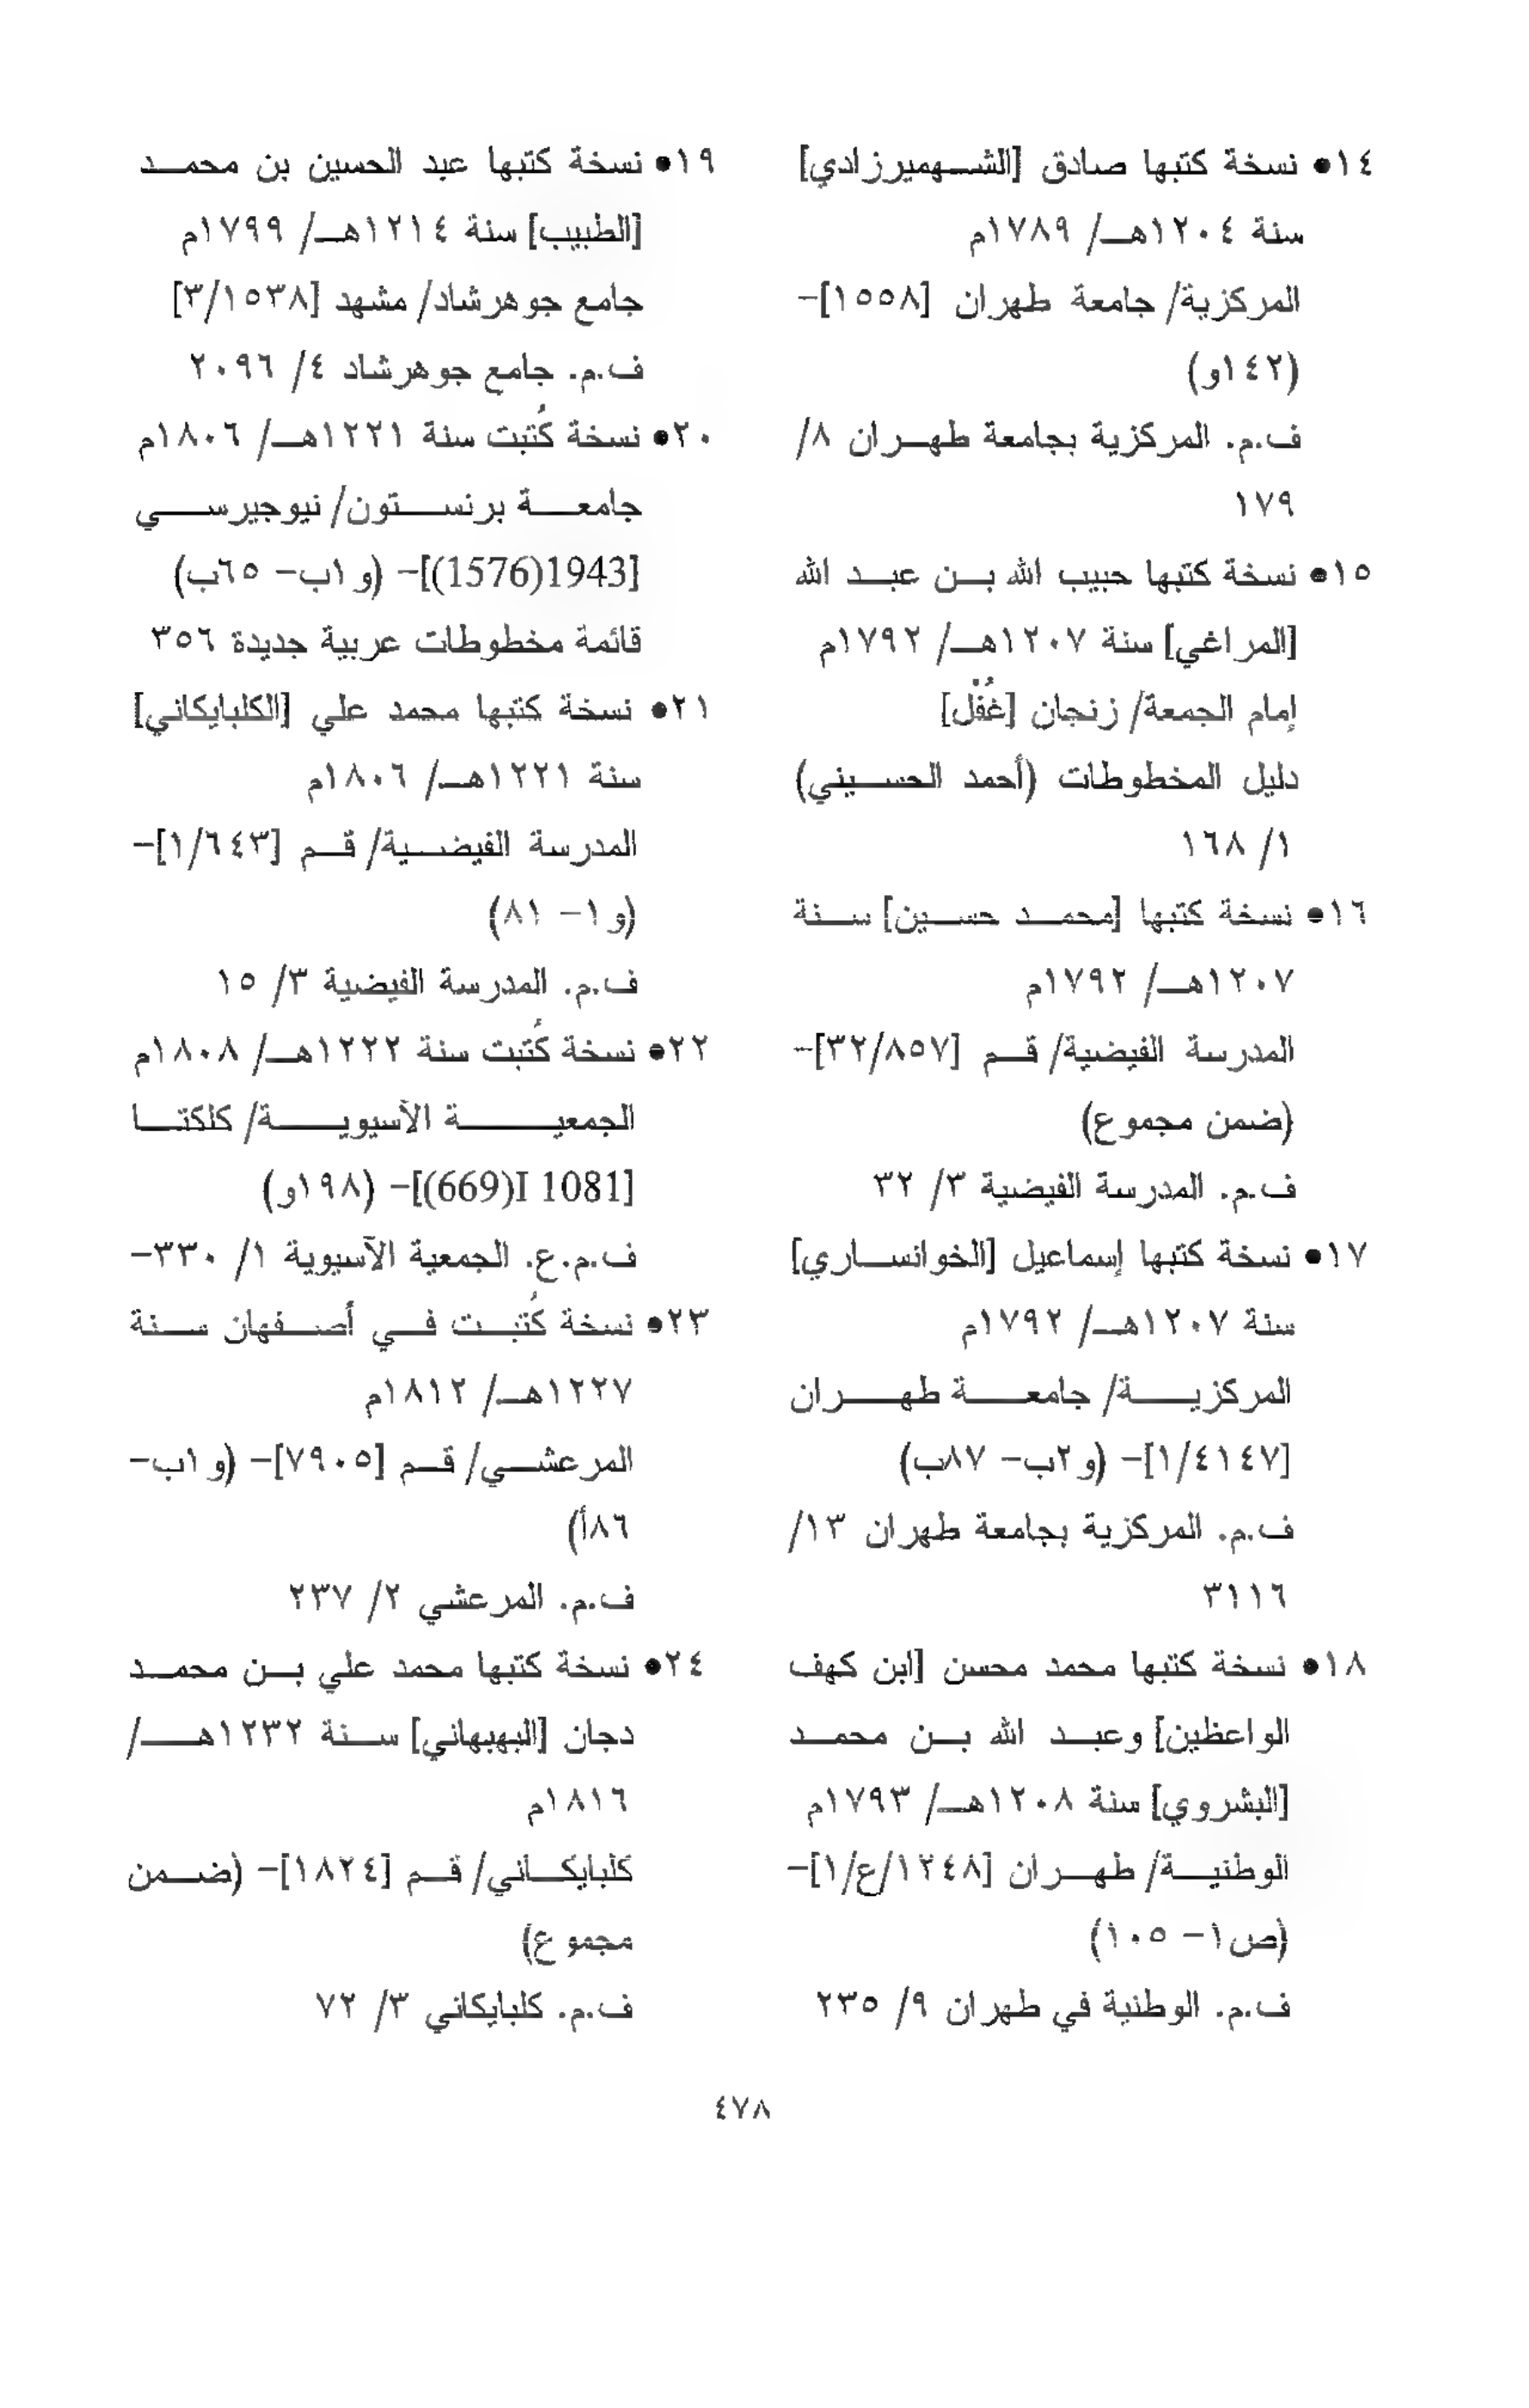 ١٤● نسخة كتبها صادق [الشهميرزادي]
سنة ١٢٠٤هـ/ ١٧٨٩م
المركزية/ جامعة طهران [١٥٥٨]-
(١٤٢و)
ف.م. المركزية بجامعة طهران ٨/
١٧٩
١٥● نسخة كتبها حبيب الله بن عبد الله
[المراغي] سنة ١٢٠٧هـ/ ١٧٩٢م
إمام الجمعة/ زنجان [غُفْل]
دليل المخطوطات (أحمد الحسيني)
١/ ١٦٨
١٦● نسخة كتبها [محمد حسين] سنة
١٢٠٧هـ/ ١٧٩٢م
المدرسة الفيضية/ قم [٣٢/٨٥٧]-
(ضمن مجموع)
ف.م. المدرسة الفيضية ٣/ ٣٢
١٧● نسخة كتبها إسماعيل [الخوانساري]
سنة ١٢٠٧هـ/ ١٧٩٢م
المركزية/ جامعة طهران
[١/٤١٤٧]- (و٢ب- ٨٧ب)
ف.م. المركزية بجامعة طهران ١٣/
٣١١٦
١٨● نسخة كتبها محمد محسن [ابن كهف
الواعظين] وعبد الله بن محمد
[البشروي] سنة ١٢٠٨هـ/ ١٧٩٣م
الوطنية/ طهران [١٢٤٨/ع/١]-
(ص١- ١٠٥)
ف.م. الوطنية في طهران ٩/ ٢٣٥
١٩● نسخة كتبها عبد الحسين بن محمد
[الطبيب] سنة ١٢١٤هـ/ ١٧٩٩م
جامع جوهرشاد/ مشهد [٣/١٥٣٨]
ف.م. جامع جوهرشاد ٤/ ٢٠٩٦
٢٠● نسخة كُتبت سنة ١٢٢١هـ/ ١٨٠٦م
جامعة برنستون/ نيوجيرسي
[1943(1576)]- (و١ب- ٦٥ب)
قائمة مخطوطات عربية جديدة ٣٥٦
٢١● نسخة كتبها محمد علي [الكلبايكاني]
سنة ١٢٢١هـ/ ١٨٠٦م
المدرسة الفيضية/ قم [١/٦٤٣]-
(و١- ٨١)
ف.م. المدرسة الفيضية ٣/ ١٥
٢٢● نسخة كُتبت سنة ١٢٢٢هـ/ ١٨٠٨م
الجمعية الآسيوية/ كلكتا
[1081 I(669)]- (١٩٨و)
ف.م.ع. الجمعية الآسيوية ١/ ٣٣٠-
٢٣● نسخة كُتبت في أصفهان سنة
١٢٢٧هـ/ ١٨١٢م
المرعشي/ قم [٧٩٠٥]- (و١ب-
٨٦أ)
ف.م. المرعشي ٢/ ٢٣٧
٢٤● نسخة كتبها محمد علي بن محمد
دجان [البهبهاني] سنة ١٢٣٢هـ/
١٨١٦م
كلبايكاني/ قم [١٨٢٤]- (ضمن
مجموع)
ف.م. كلبايكاني ٣/ ٧٢
٤٧٨